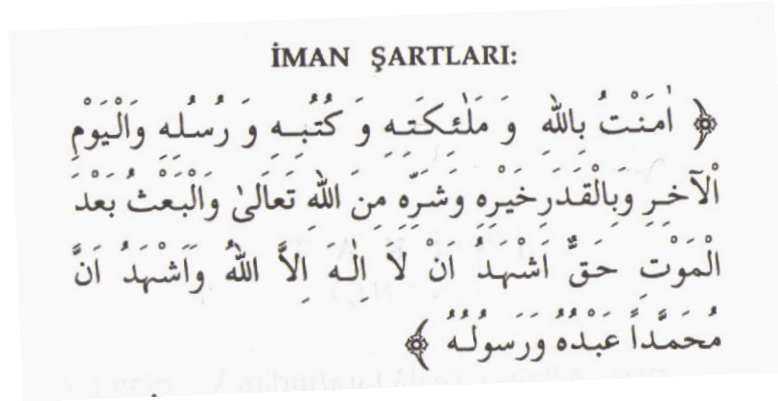 İMAN ŞARTLARI:
﴿ اٰمَنْتُ بِاللّٰهِ وَ مَلٰئِكَتِهِ وَ كُتُبِهِ وَ رُسُلِهِ وَالْيَوْمِ
الْاٰخِرِ وَبِالْقَدَرِ خَيْرِهِ وَشَرِّهِ مِنَ اللّٰهِ تَعَالٰى وَالْبَعْثُ بَعْدَ
الْمَوْتِ حَقٌّ اَشْهَدُ اَنْ لَا اِلٰهَ اِلاَّ اللّٰهُ وَاَشْهَدُ اَنَّ
مُحَمَّداً عَبْدُهُ وَرَسُولُهُ ﴾